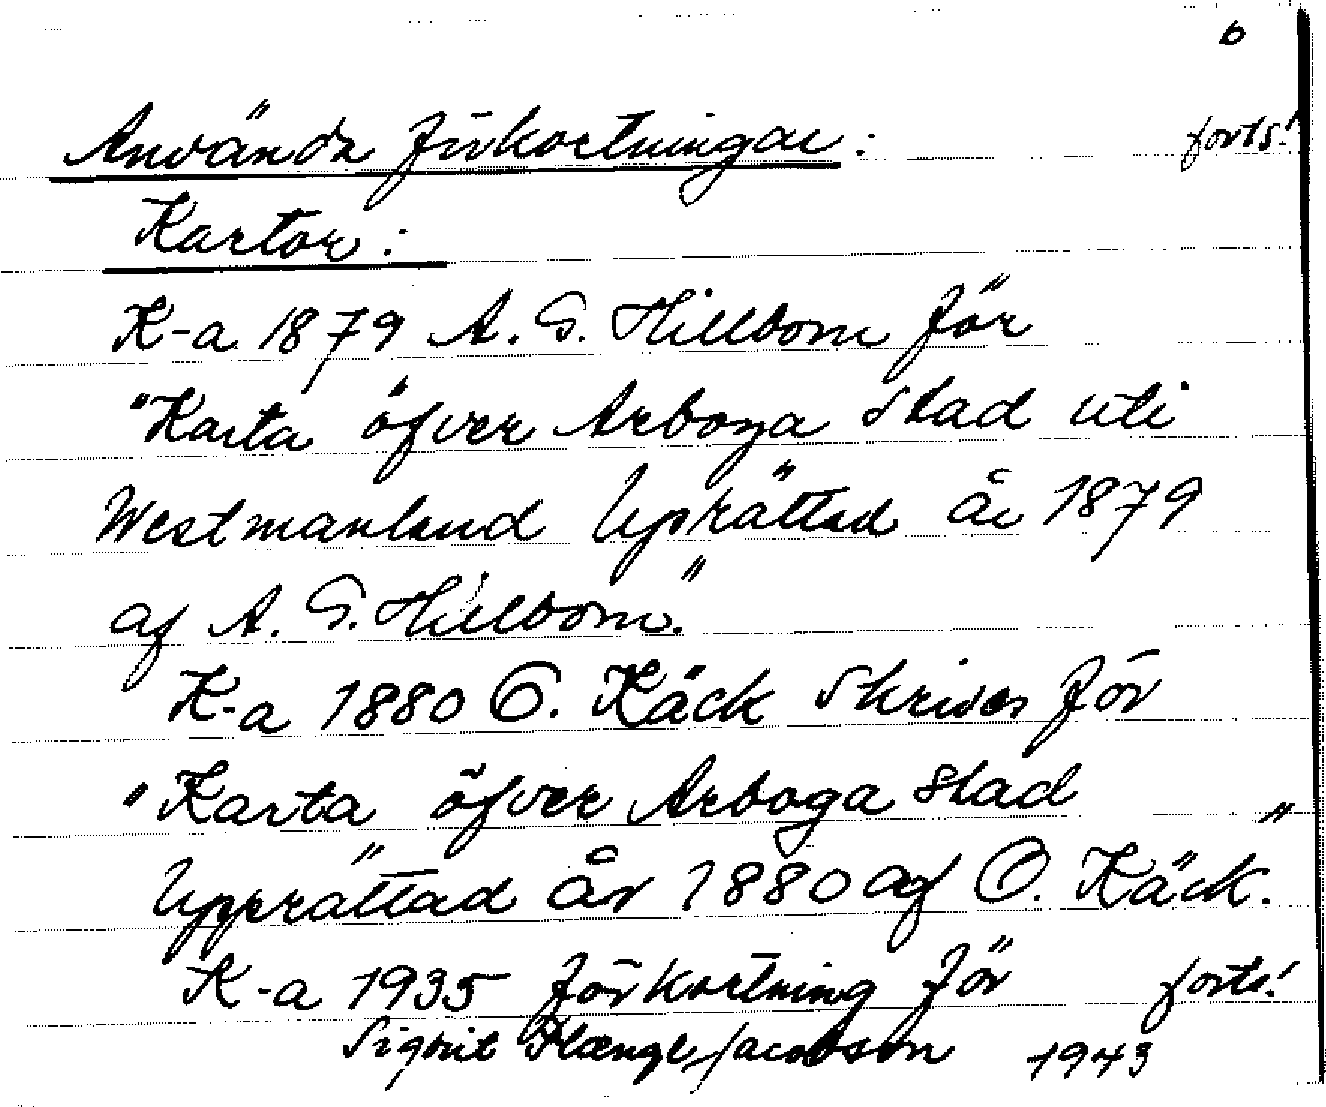 6
Använda förkortningar: forts!
Kartor:
K-a 1879 A. G. Hillbom för
"Karta öfver Arboga stad uti
Westmanland Uprättad år 1879
af A. G. Hillbom."
K-a 1880 O. Käck skrives för
"Karta öfver Arboga stad
Upprättad år 1880 af O. Käck."
K-a 1935 förkortning för forts!
Sigrit Plænge Jacobson 1943